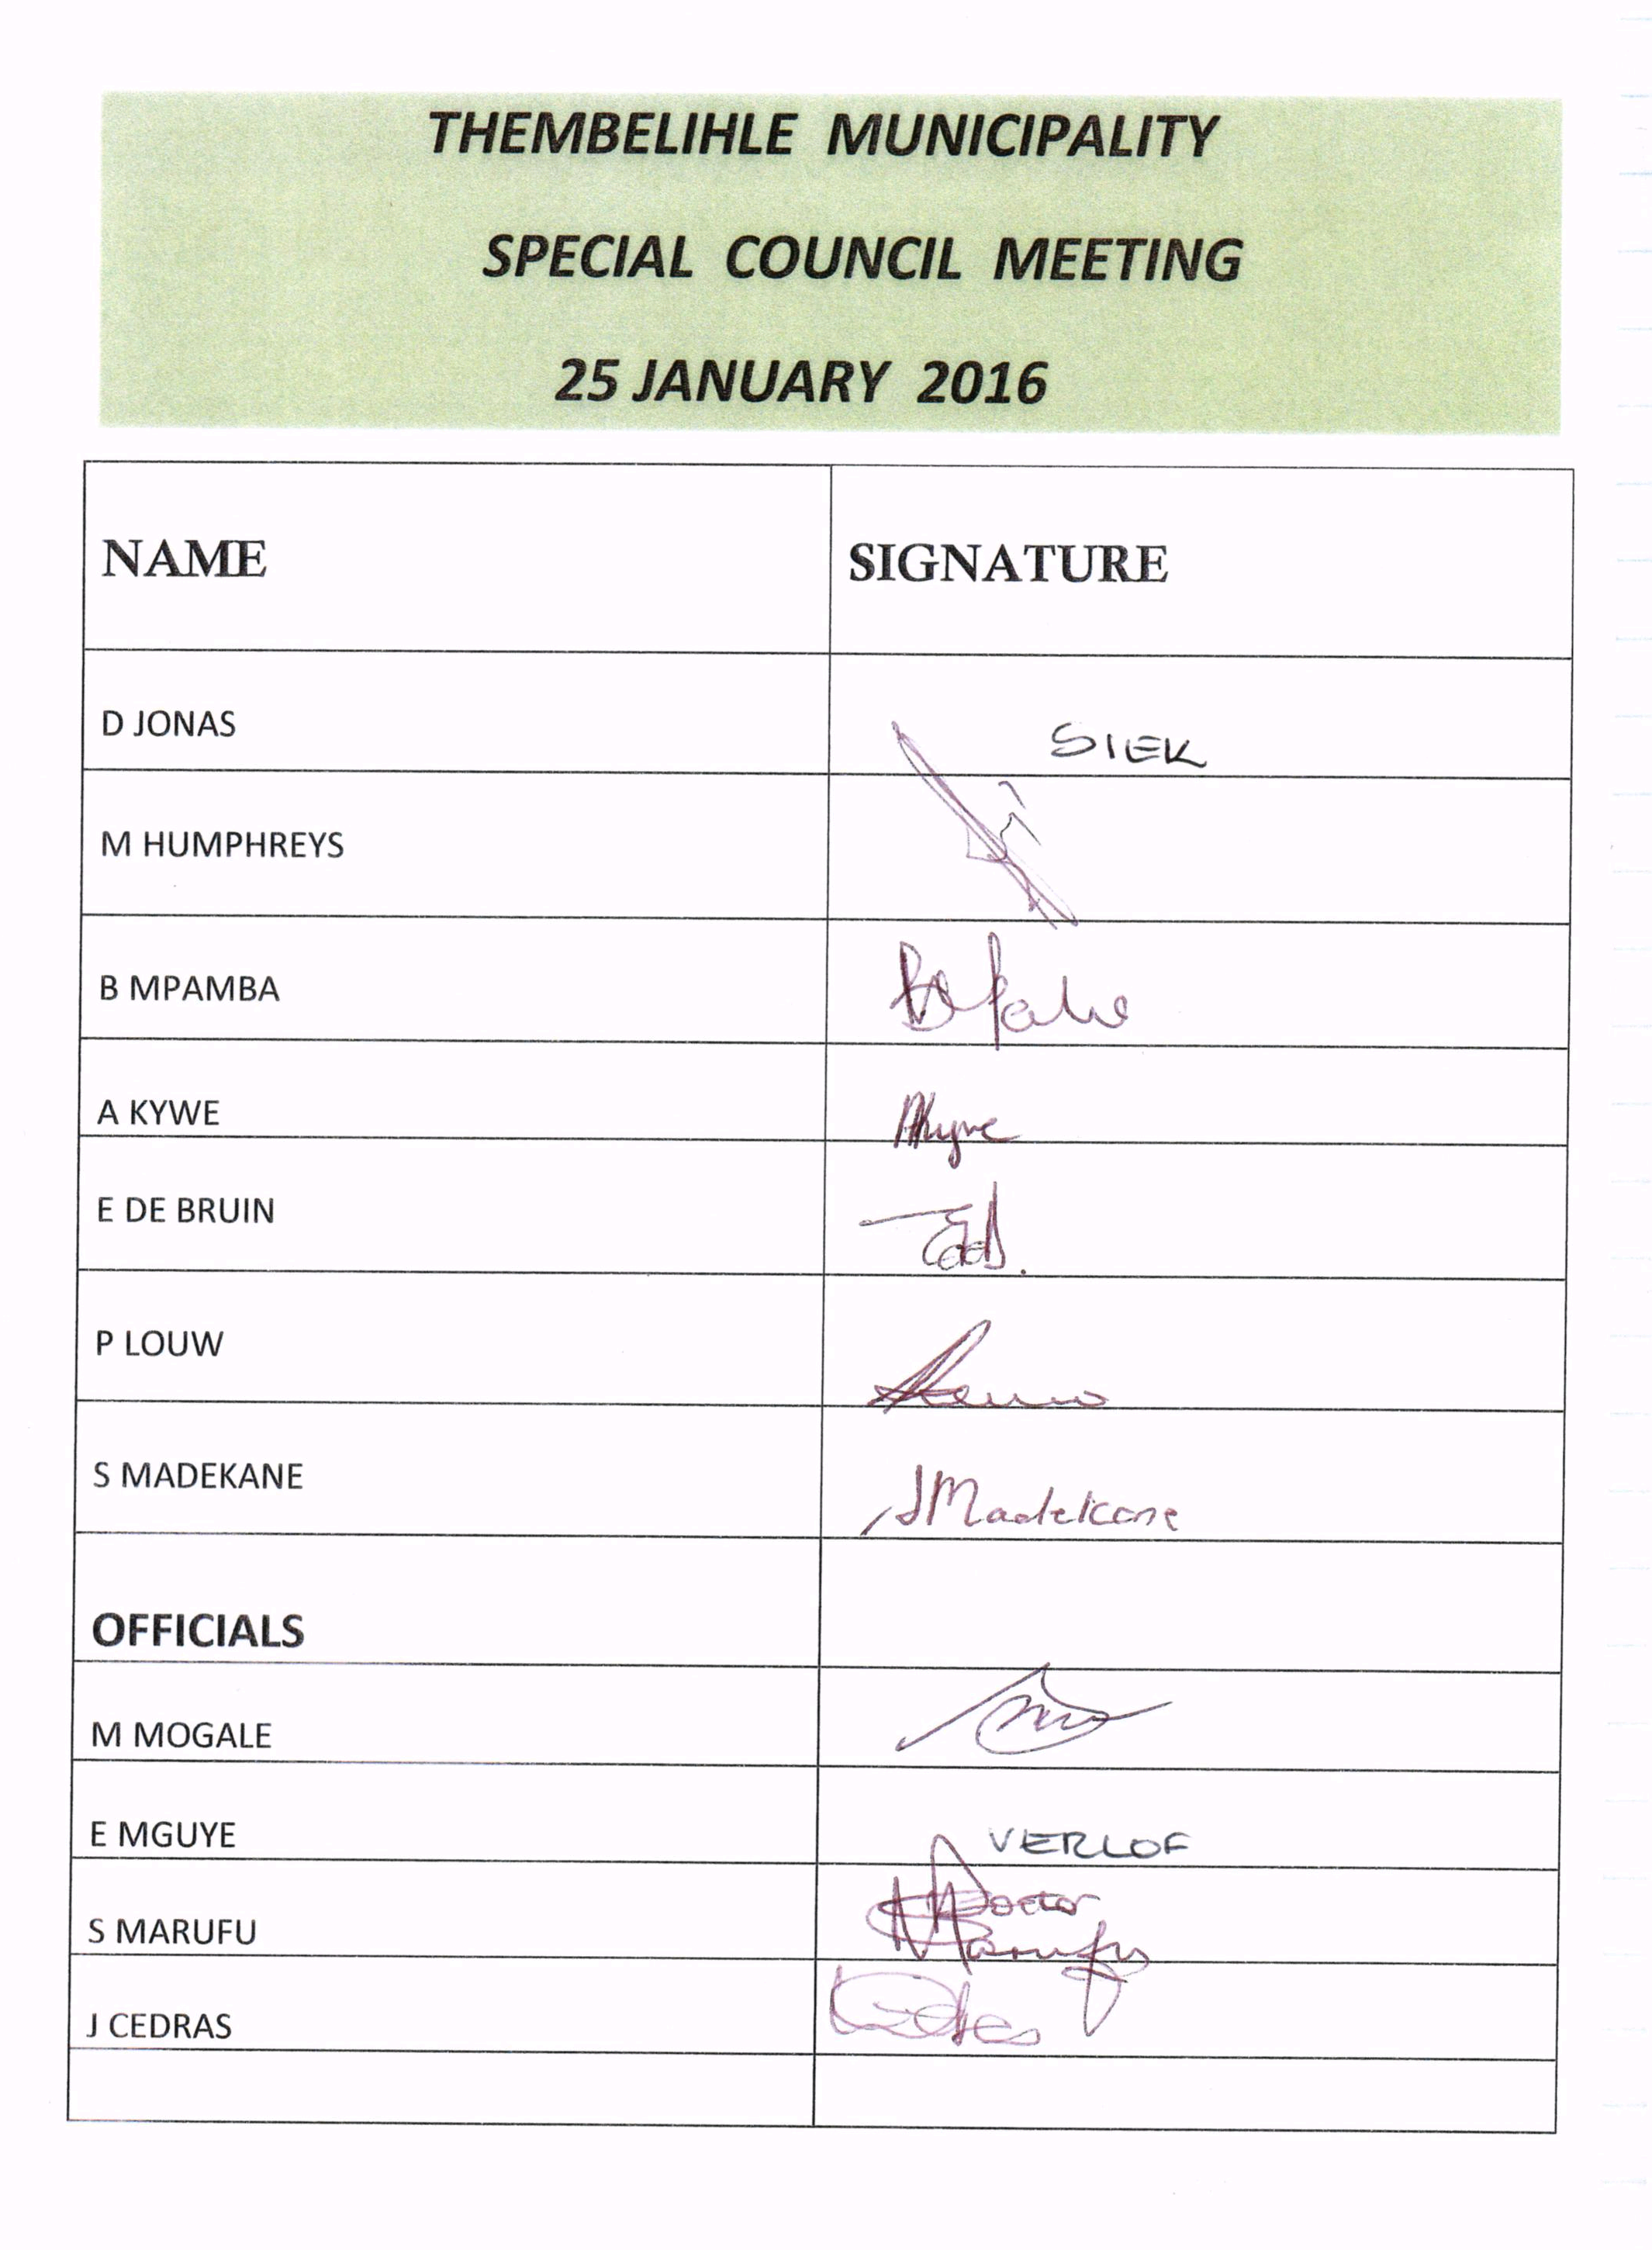 THEMBELIHLE MUNICIPALITY
SPECIAL COUNCIL MEETING
25 JANUARY 2016
NAME SIGNATURE
D JONAS SIEK
M HUMPHREYS
B MPAMBA
A KYWE
E DE BRUIN
P LOUW
S MADEKANE SMadekane
OFFICIALS
M MOGALE
E MGUYE VERLOF
S MARUFU Doctor
Marufu
J CEDRAS